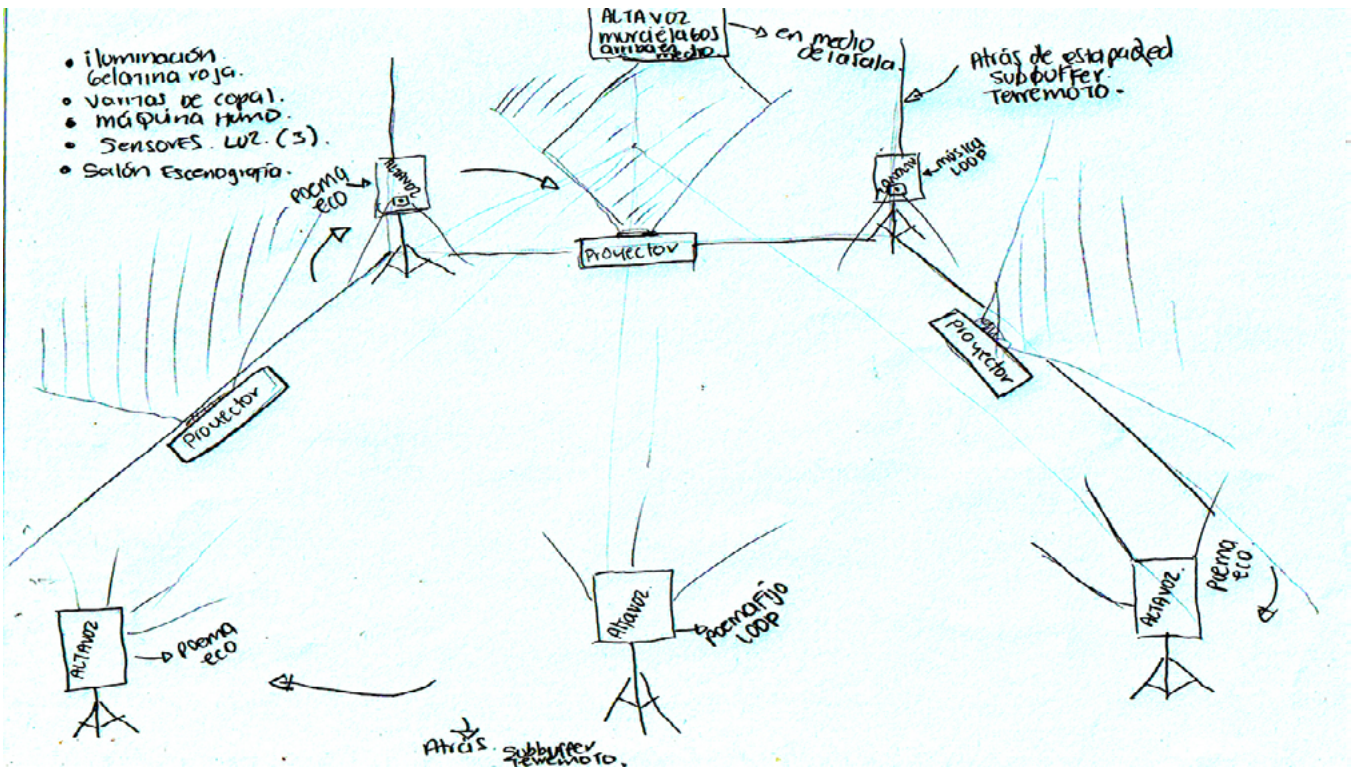 • iluminación.
Gelatina roja.
• varitas de copal.
• máquina Humo.
• SENSORES. LUZ. (3).
• Salón Escenografía.
ALTAVOZ
murciélagos
arriba en
medio
en medio
de la sala.
Atrás de esta pared
subbuffer.
Terremoto.
poema
eco
Altavoz
Altavoz
música
LOOP
Proyector
Proyector
Proyector
ALTAVOZ
poema
eco
Altavoz.
poema Fijo
LOOP
ALTAVOZ.
poema
eco
Atrás.
subbuffer
terremoto.